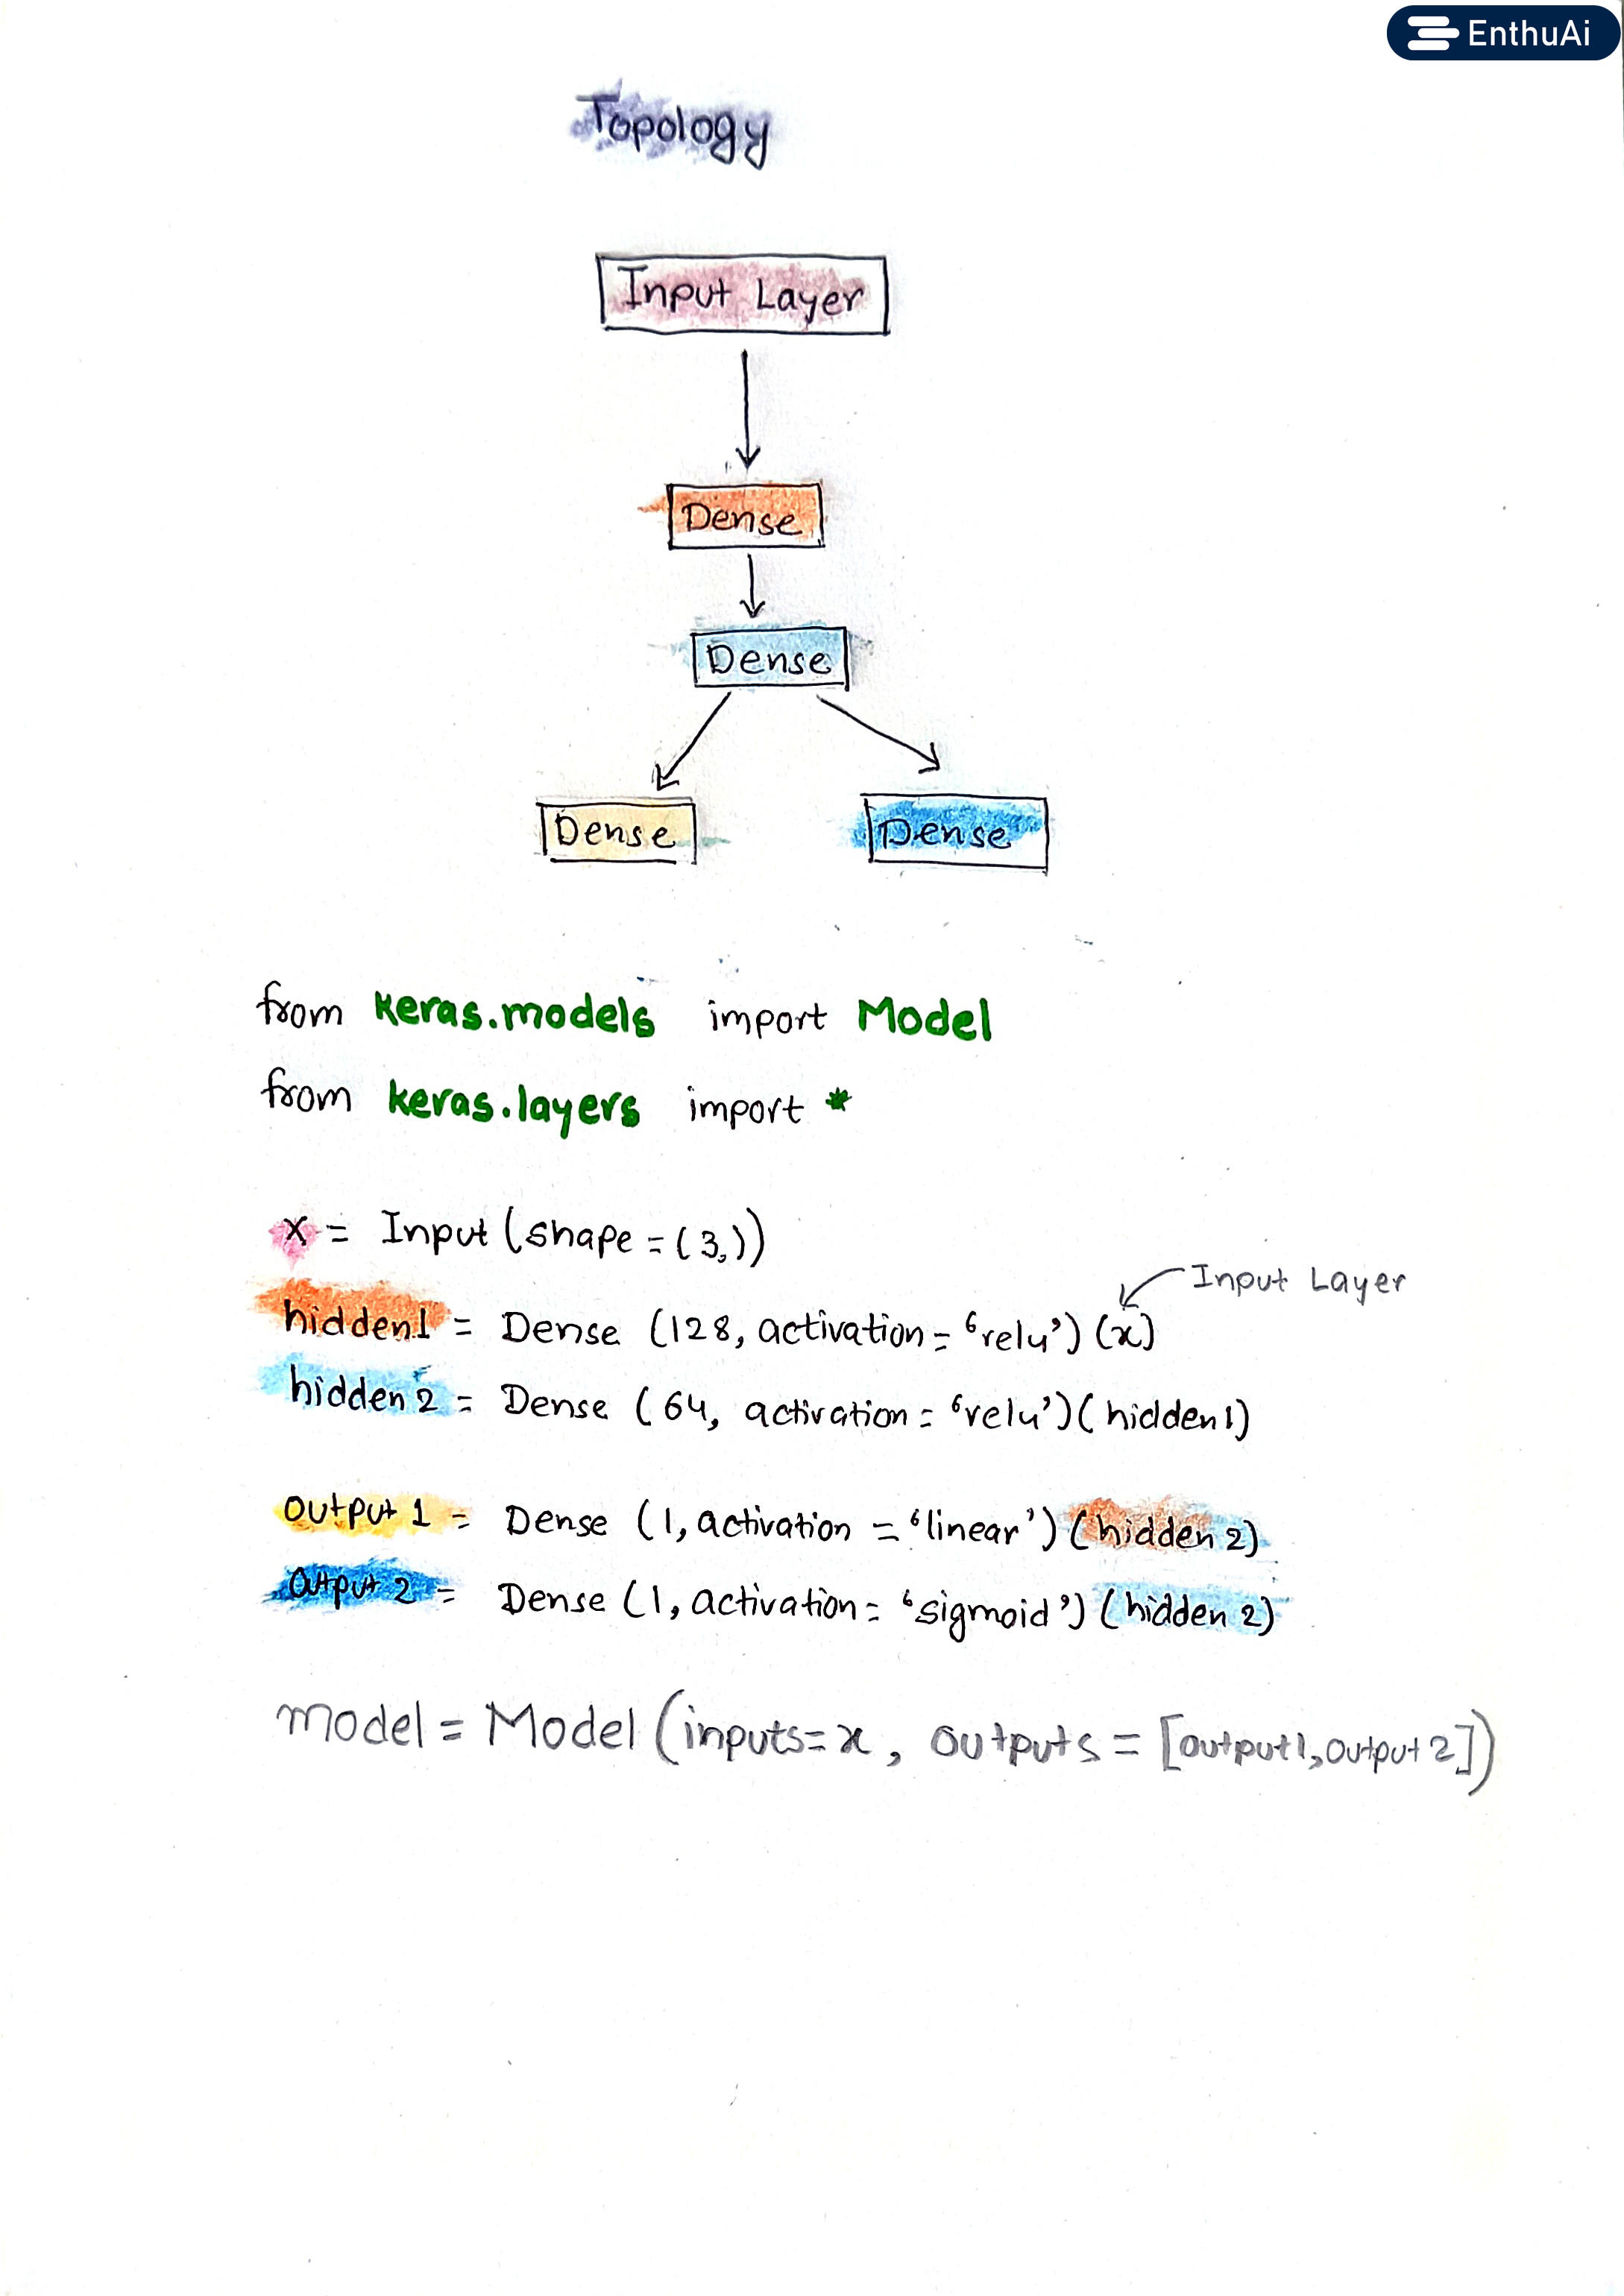 EnthuAi
Topology
Input Layer
Dense
Dense
Dense Dense
from keras.models import Model
from keras.layers import *
x = Input (shape = (3,))
Input Layer
hidden1 = Dense (128, activation = ‘relu’) (x)
hidden 2 = Dense ( 64, activation = ‘relu’) ( hidden1)
output 1 = Dense (1, activation = ‘linear’) (hidden 2)
output 2 = Dense (1, activation = ‘sigmoid’) (hidden 2)
model = Model (inputs = x , outputs = [output1, output 2])